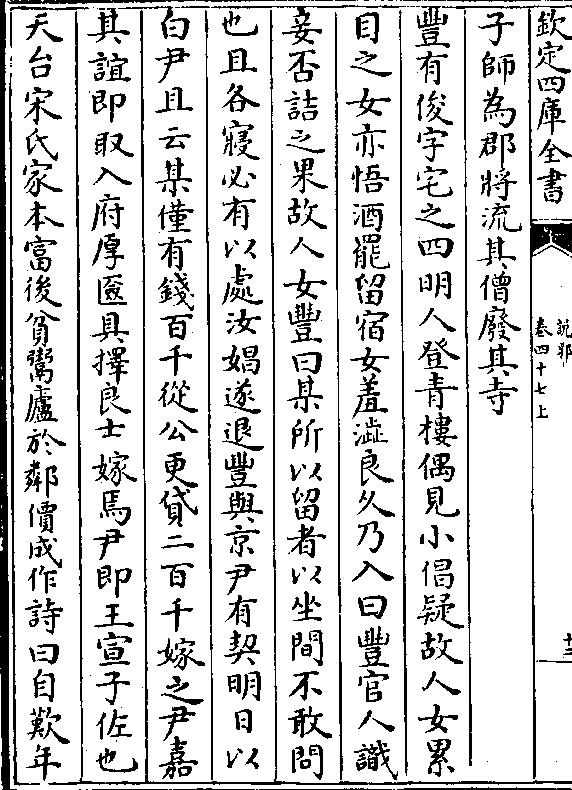 欽定四庫全書
說郛
卷四十七上
十三
子師為郡將流其僧廢其寺
豐有俊字宅之四明人登青樓偶見小倡疑故人女累
目之女亦悟酒罷留宿女羞澁良久乃入曰豐官人識
妾否詰之果故人女豐曰某所以留者以坐間不敢問
也且各寢必有以處汝娼遂退豐與京尹有契明日以
白尹且云某僅有錢百千從公更貸二百千嫁之尹嘉
其誼即取入府厚匳具擇良士嫁焉尹即王宣子佐也
天台宋氏家本富後貧鬻廬於鄰價成作詩曰自歎年